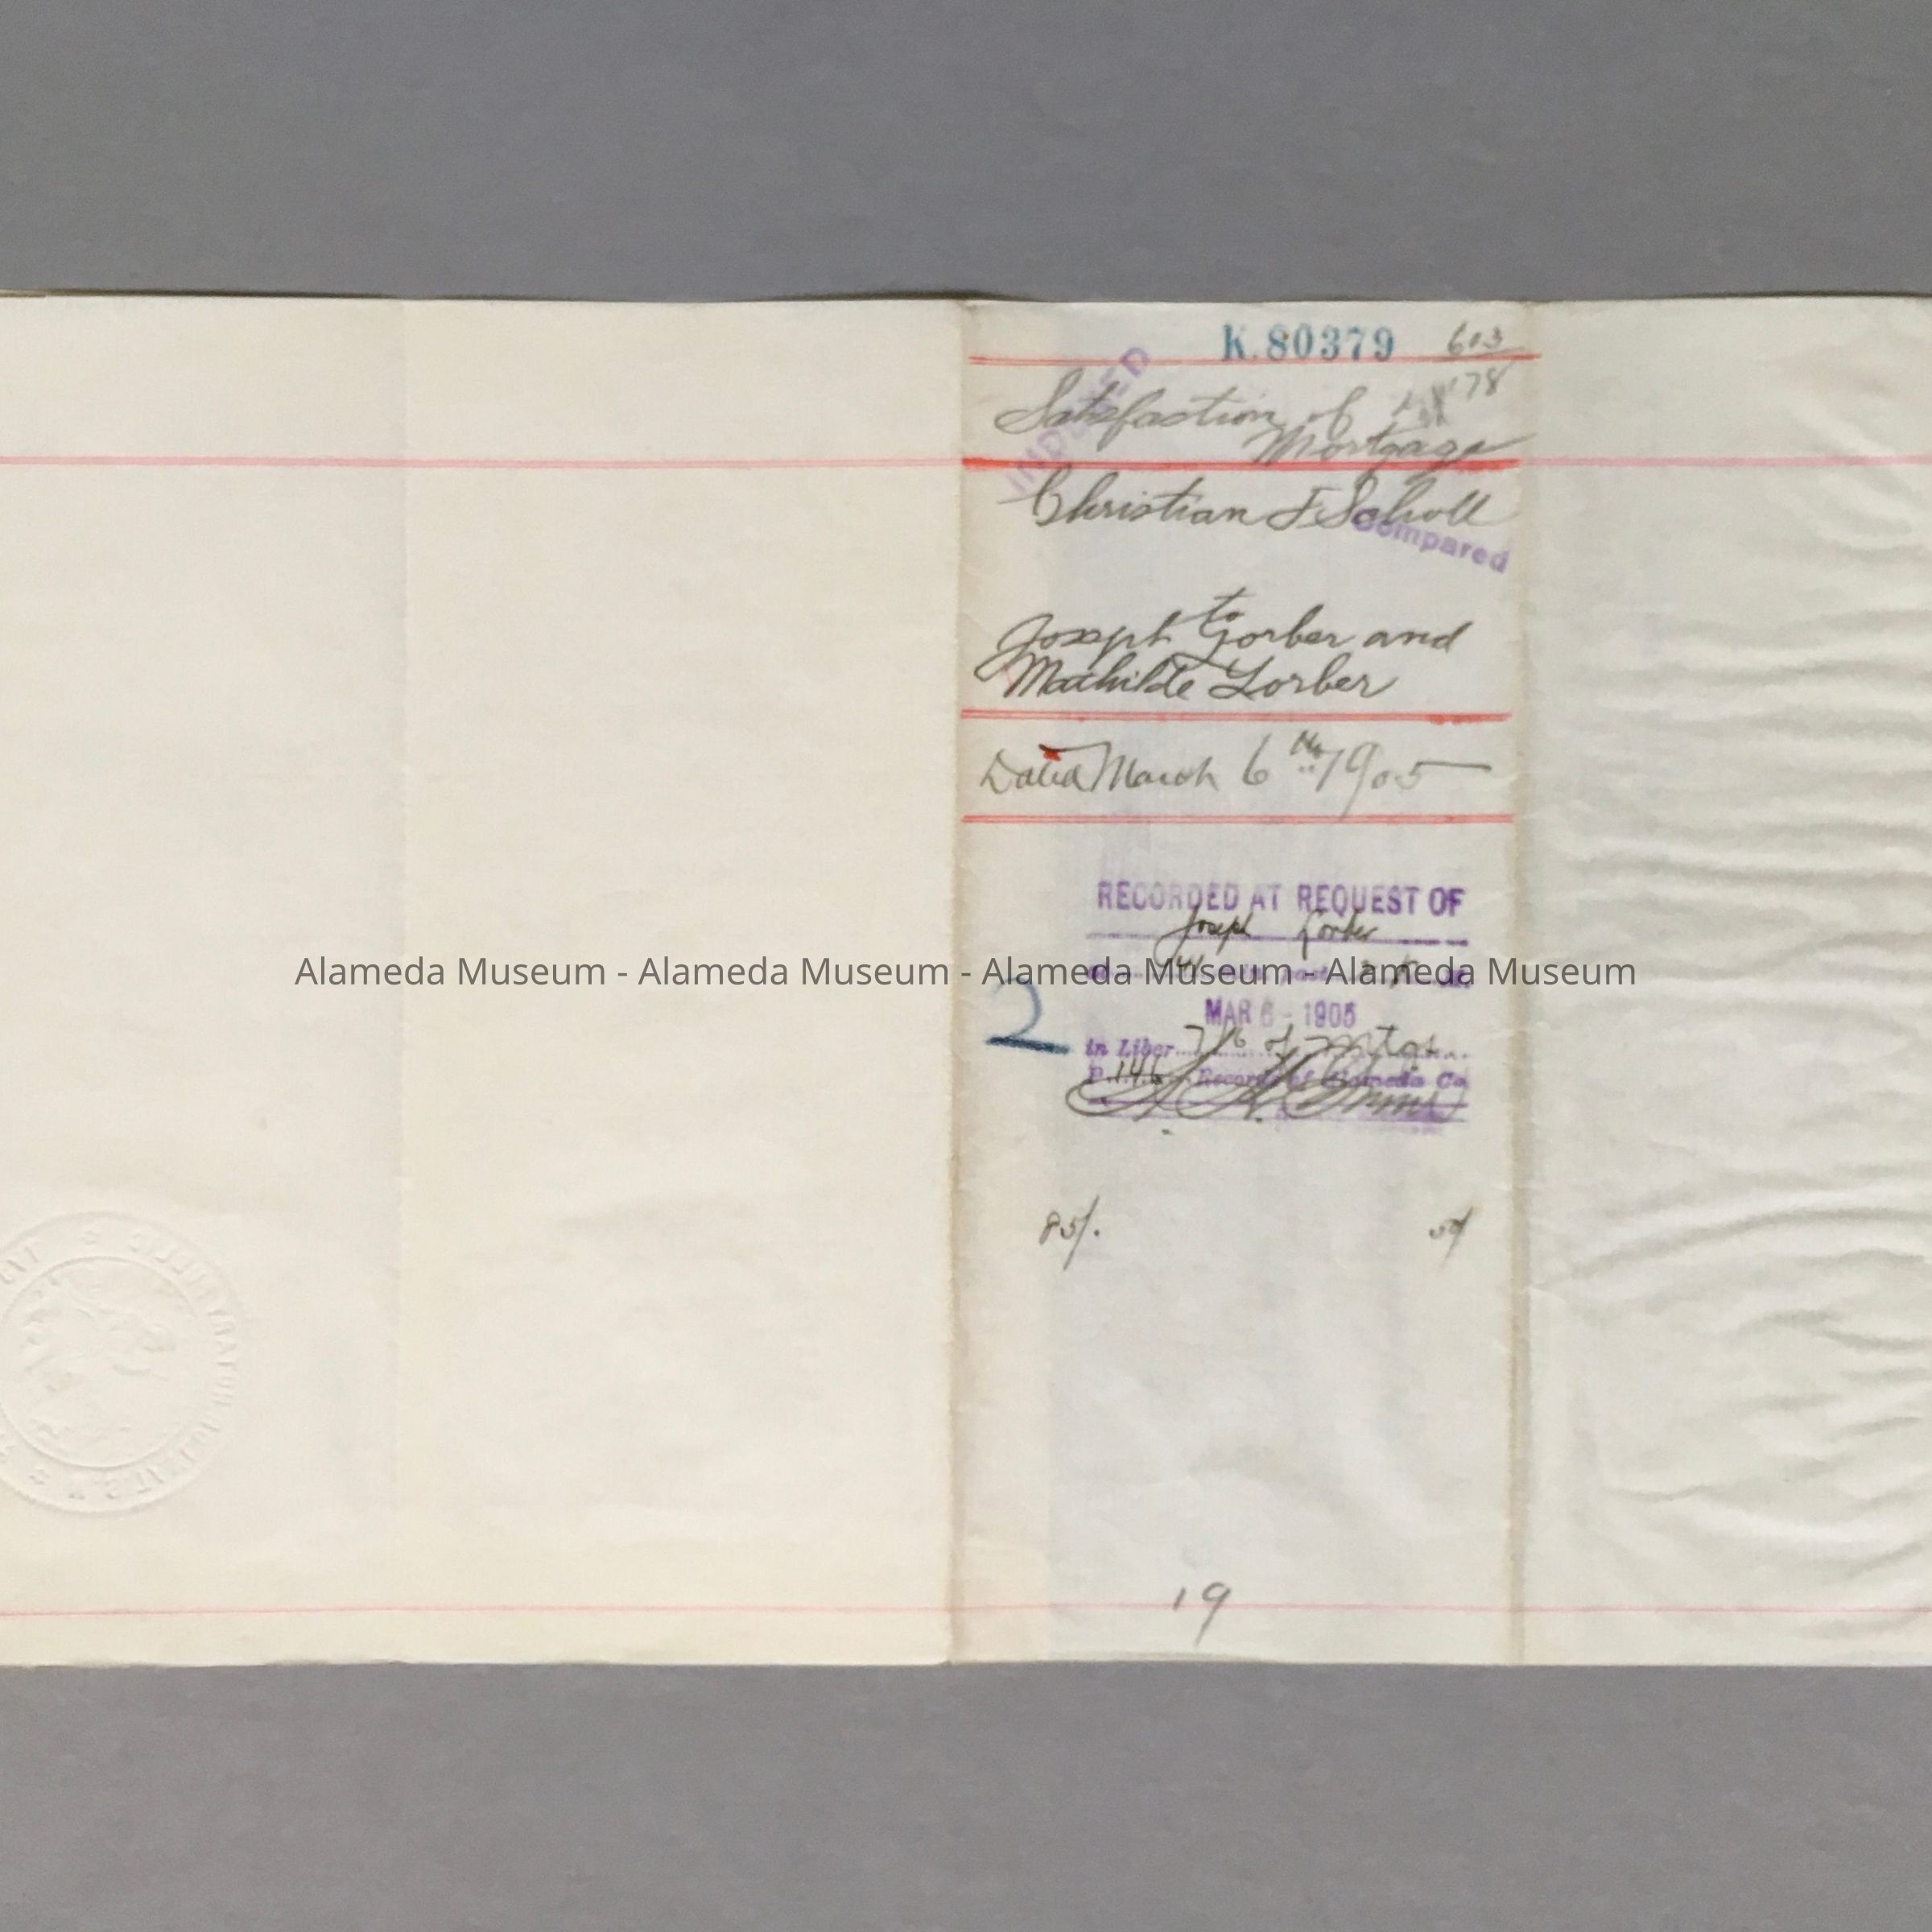 K.80379 603
78
Satisfaction of
Mortgage
INDEXED
Christian F Scholl
Compared
to
Joseph Lorber and
Mathilde Lorber
Dated March 6th 1905
RECORDED AT REQUEST OF
Joseph Lorber
at 41 min. past M.
Alameda Museum - Alameda Museum - Alameda Museum - Alameda Museum
MAR 6 - 1905
2
in Liber 716 of Mtgs
P. 146 Records of Alameda Co
85/.
19
NOTARY PUBLIC